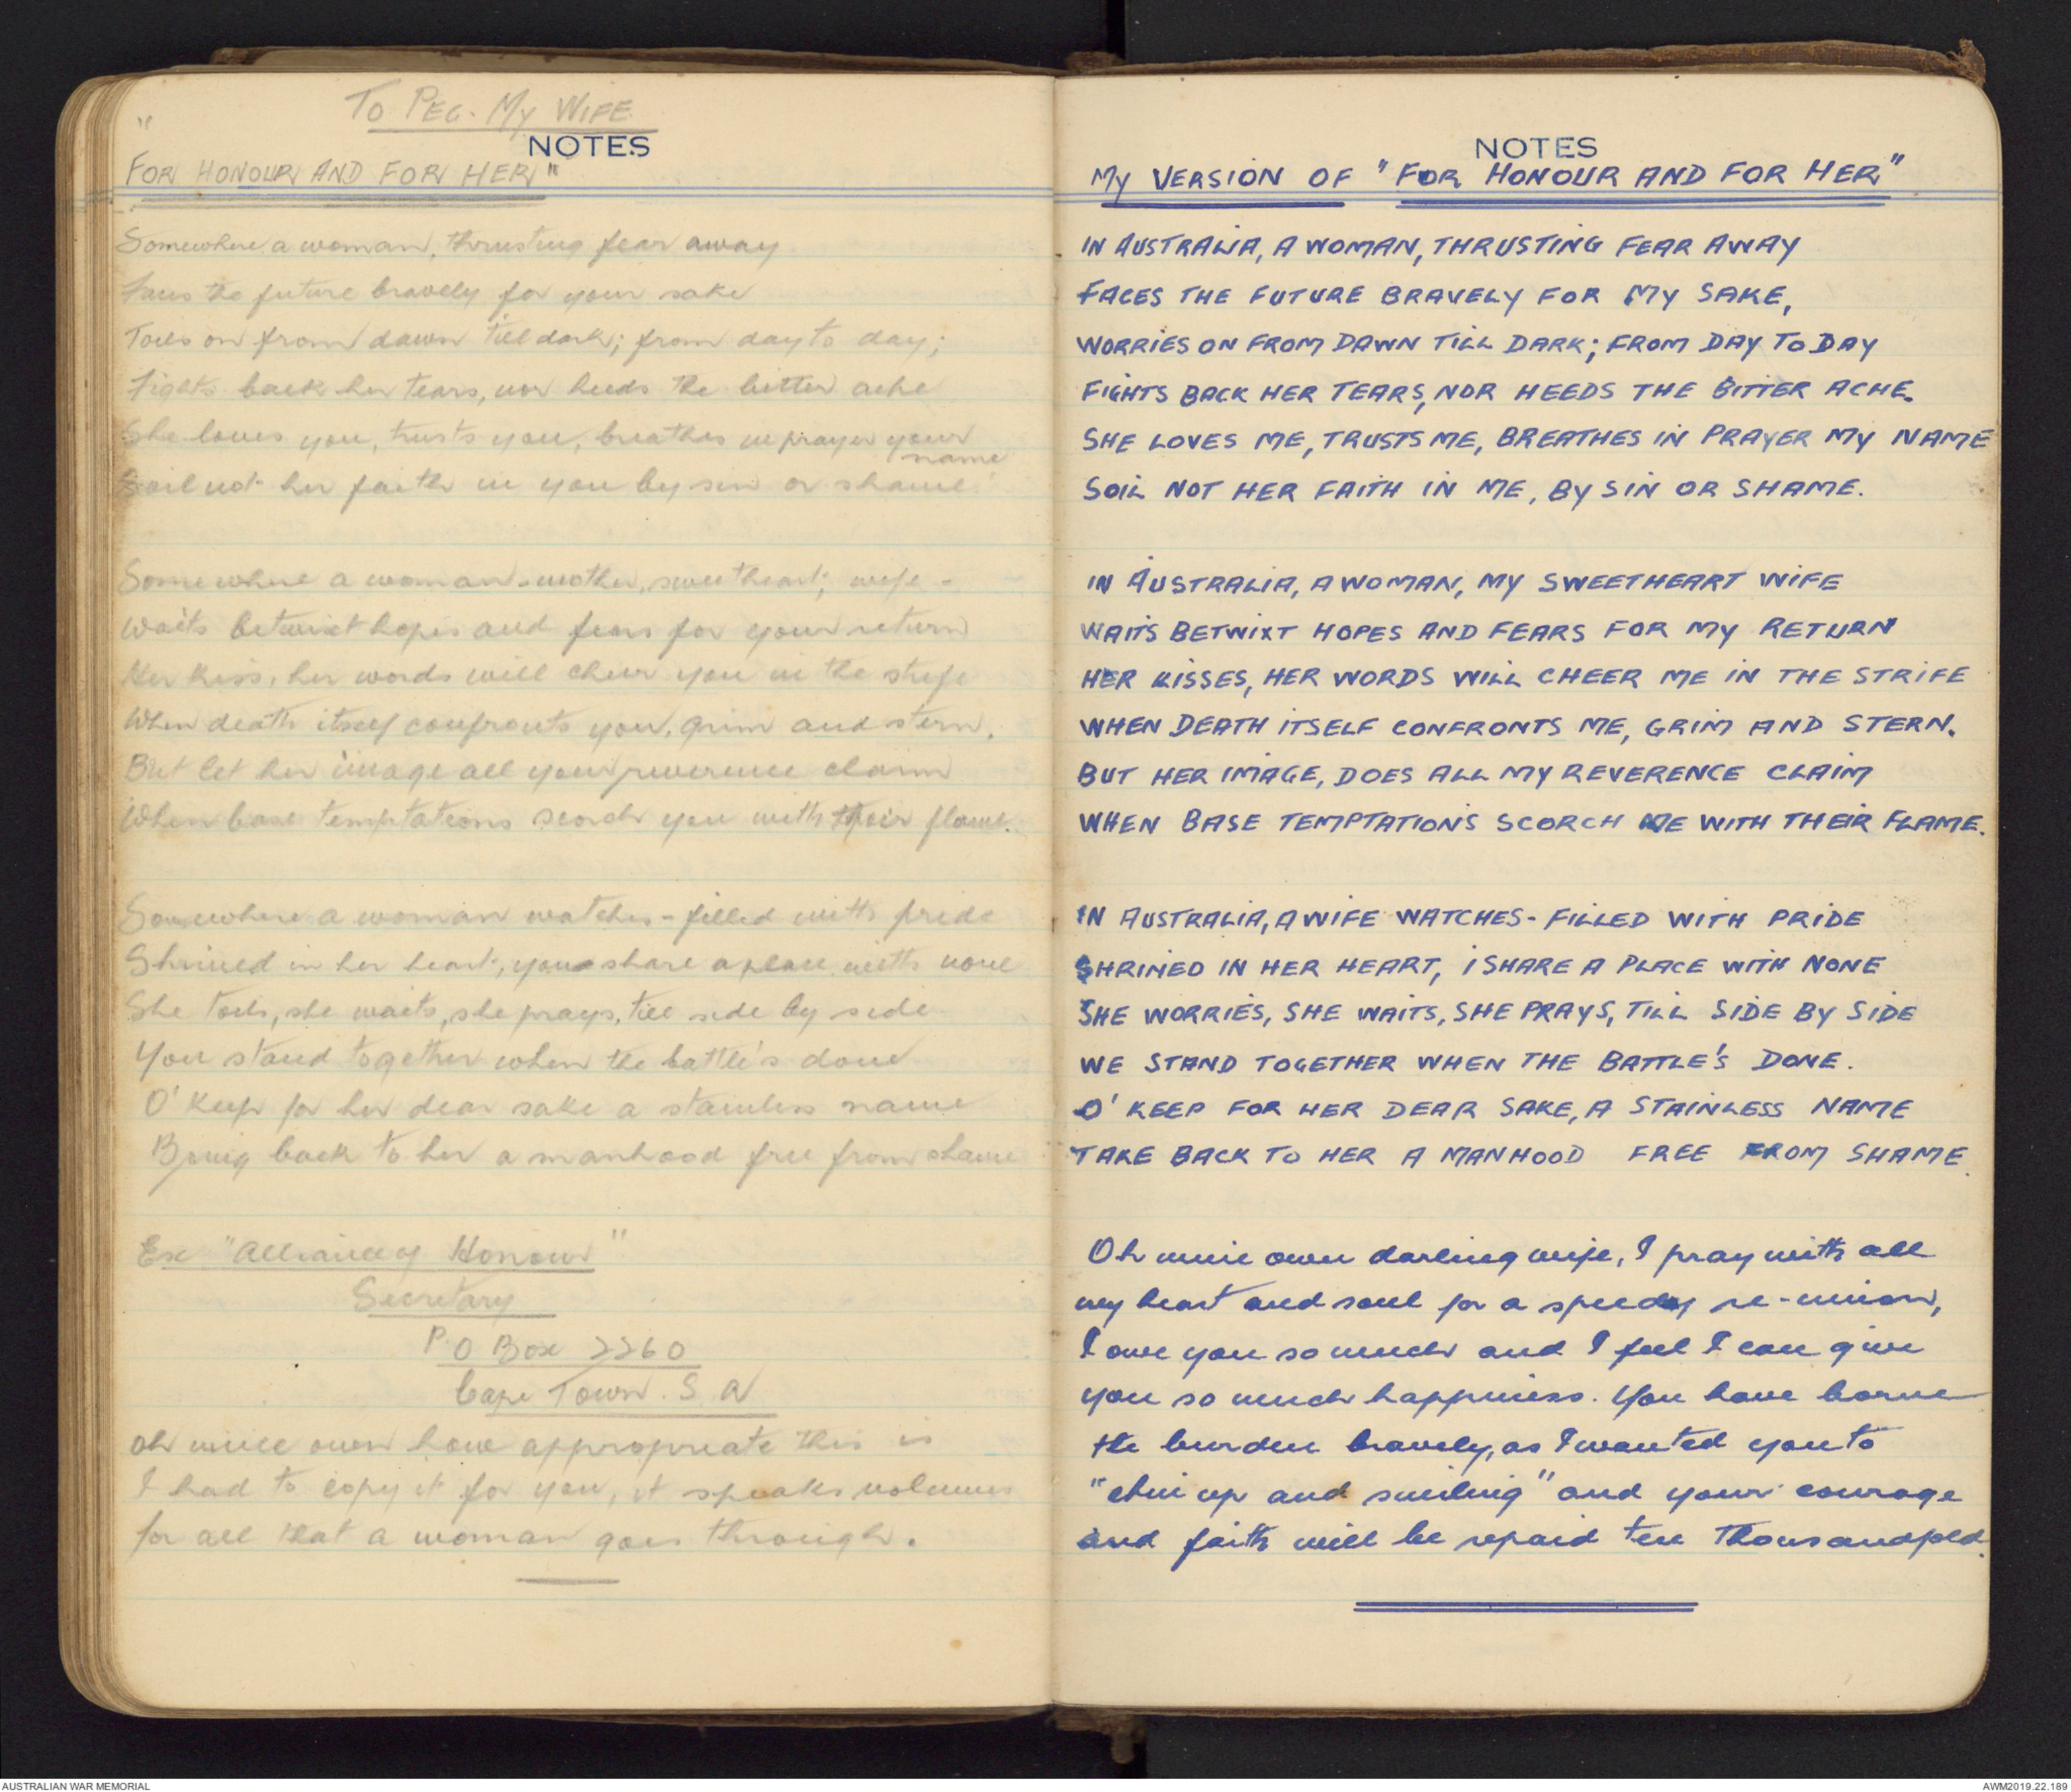 To PEG. My WIFE.
NOTES
"
FOR HONOUR AND FOR HER"
Somewhere a woman, thrusting fear away
Faces the future bravely for your sake
Toils on from dawn till dark; from day to day;
Fights back her tears, nor heeds the bitter ache
She loves you, trusts you, breathes in prayer your
name
Soil not her faith in you by sin or shame.
Somewhere a woman - mother, sweetheart, wife -
Waits betwixt hopes and fears for your return
Her kiss, her words will cheer you in the strife
When death itself confronts you, grim and stern.
But let her image all your reverence claim
When base temptations scorch you with their flame.
Somewhere a woman watches - filled with pride
Shrined in her heart, you share a place with none
She toils, she waits, she prays, till side by side
You stand together when the battle's done
O' keep for her dear sake a stainless name
Bring back to her a manhood free from shame
Ex "Alliance of Honour"
Secretary
P.O Box 2260
Cape Town. S. A
Oh mine own how appropriate this is
I had to copy it for you, it speaks volumes
for all that a woman goes through.
NOTES
My VERSION OF "FOR HONOUR AND FOR HER"
IN AUSTRALIA, A WOMAN, THRUSTING FEAR AWAY
FACES THE FUTURE BRAVELY FOR MY SAKE,
WORRIES ON FROM DAWN TILL DARK; FROM DAY TO DAY
FIGHTS BACK HER TEARS, NOR HEEDS THE BITTER ACHE.
SHE LOVES ME, TRUSTS ME, BREATHES IN PRAYER MY NAME
SOIL NOT HER FAITH IN ME, BY SIN OR SHAME.
IN AUSTRALIA, A WOMAN, MY SWEETHEART WIFE
WAITS BETWIXT HOPES AND FEARS FOR MY RETURN
HER KISSES, HER WORDS WILL CHEER ME IN THE STRIFE
WHEN DEATH ITSELF CONFRONTS ME, GRIM AND STERN.
BUT HER IMAGE, DOES ALL MY REVERENCE CLAIM
WHEN BASE TEMPTATIONS SCORCH ME WITH THEIR FLAME.
IN AUSTRALIA, A WIFE WATCHES - FILLED WITH PRIDE
SHRINED IN HER HEART, I SHARE A PLACE WITH NONE
SHE WORRIES, SHE WAITS, SHE PRAYS, TILL SIDE BY SIDE
WE STAND TOGETHER WHEN THE BATTLE'S DONE.
O' KEEP FOR HER DEAR SAKE, A STAINLESS NAME
TAKE BACK TO HER A MANHOOD FREE FROM SHAME.
Oh mine own darling wife, I pray with all
my heart and soul for a speedy re-union,
I owe you so much and I feel I can give
you so much happiness. You have borne
the burden bravely, as I wanted you to
"chin up and smiling" and your courage
and faith will be repaid ten thousandfold.
AUSTRALIAN WAR MEMORIAL
AWM2019.22.189